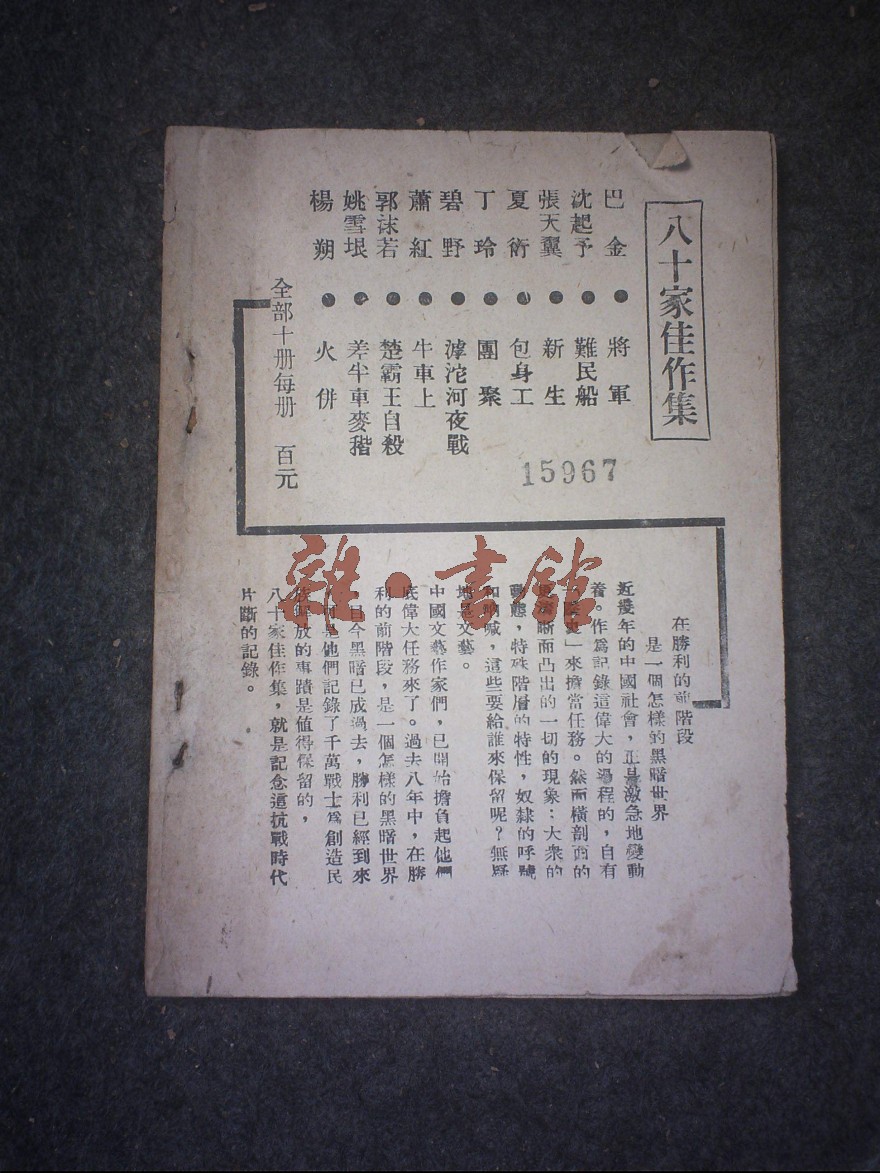 八十家佳作集
巴金●將軍
沈起予●難民船
張天翼●新生
夏衍●包身工
丁玲●團聚
碧野●滹沱河夜戰
蕭紅●牛車上
郭沫若●楚霸王自殺
姚雪垠●差半車麥稭
楊朔●火併
全部十册每册 百元
15967
在勝利的前階段
是一個怎樣的黑暗世界
近幾年的中國社會，正是激急地變動
着。作爲記錄這偉大的過程的，自有
」來擔當任務。然而橫剖面的
晰而凸出的一切的現象：大衆的
動態，特殊階層的特性，奴隸的呼號
和吶喊，這些要給誰來保留呢？無疑
地是文藝。
中國文藝作家們，已開始擔負起他們
底偉大任務來了。過去八年中，在勝
利的前階段，是一個怎樣的黑暗世界
目今黑暗已成過去，勝利已經到來
可是他們記錄了千萬戰士爲創造民
族解放的事蹟是值得保留的，
八十家佳作集，就是記念這抗戰時代
片斷的記錄。
雜·書館